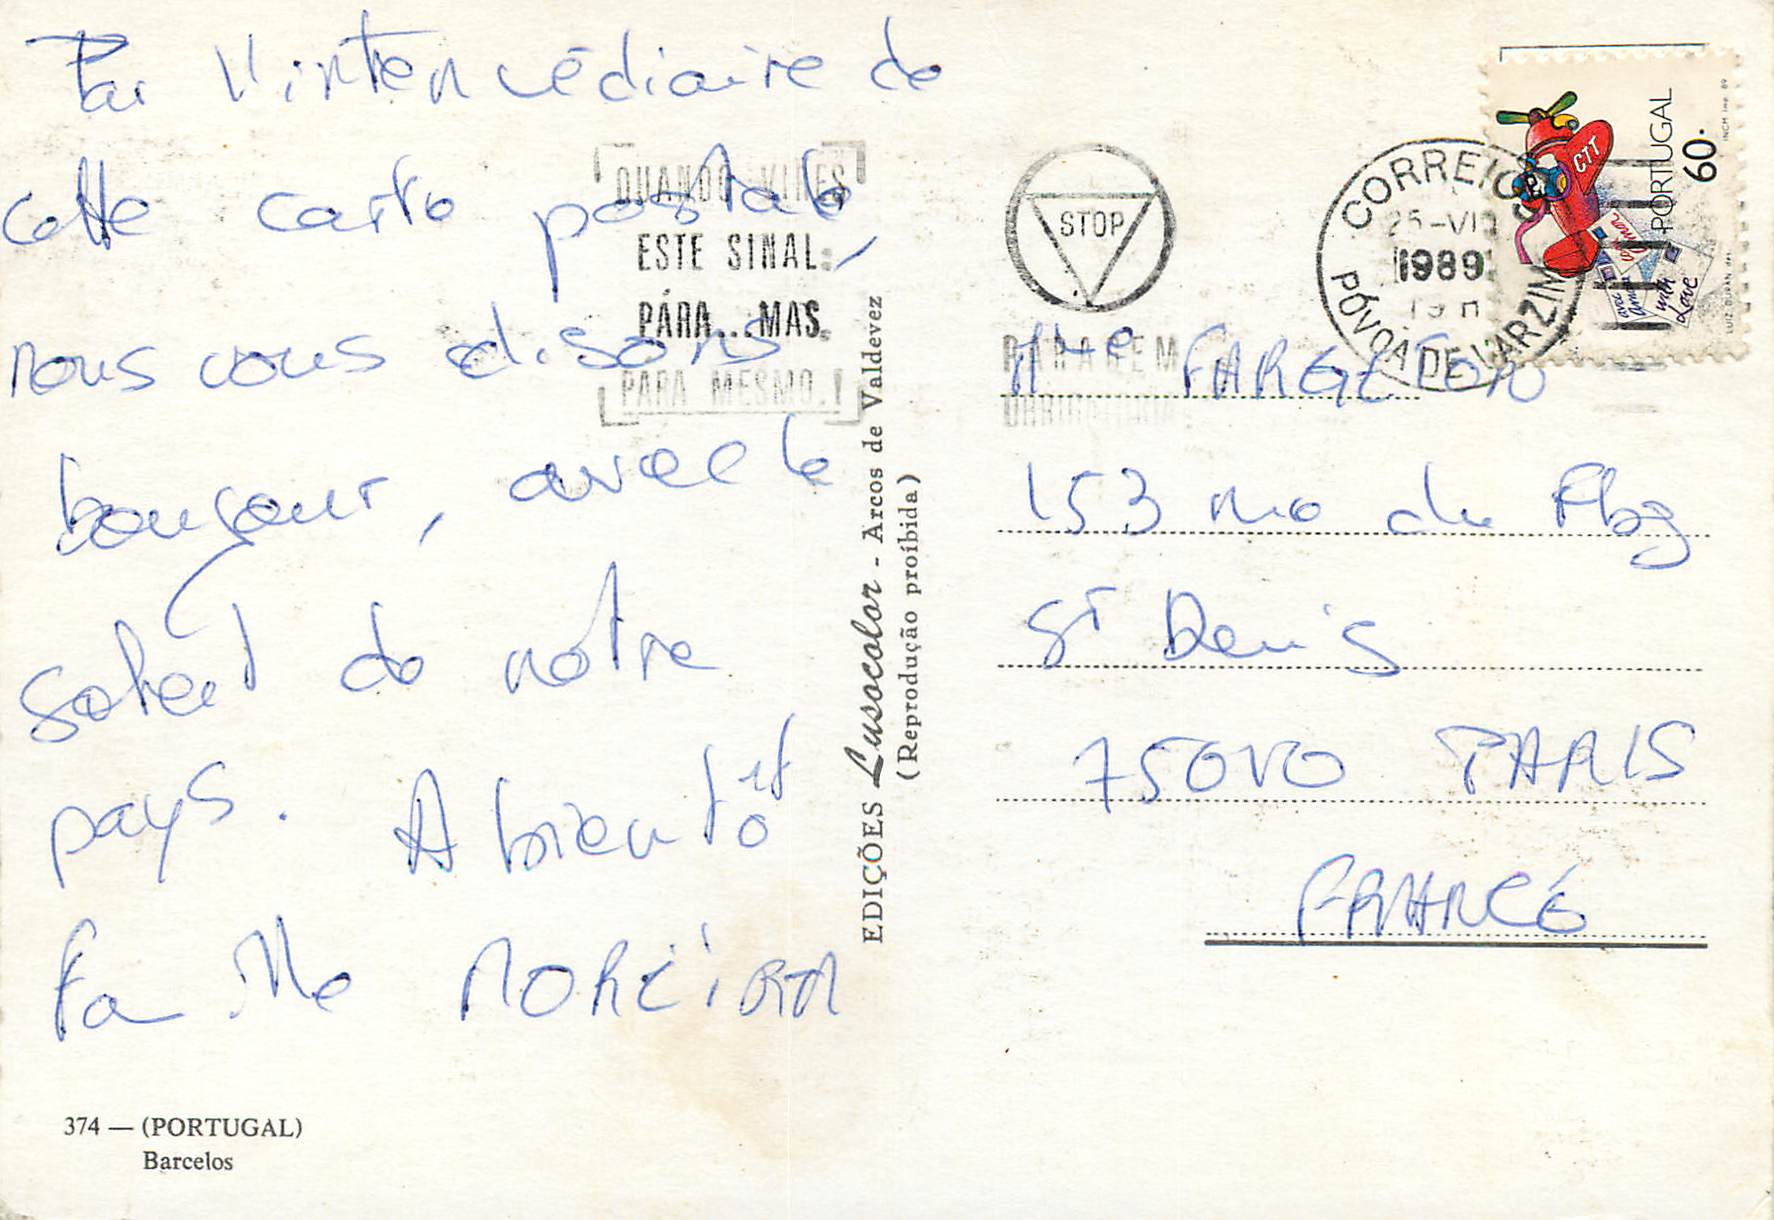 Par l'intermédiaire de
cette carte postale,
nous vous disons
bonjour, avec le
soleil de notre
pays. A bientôt
famille MOREIRA
374 — (PORTUGAL)
Barcelos
QUANDO VIRES
ESTE SINAL:
PÁRA...MAS.
PARA MESMO.!
EDIÇÕES Lusocolor - Arcos de Valdevez
(Reprodução proíbida)
STOP
PARAGEM
CORREIOS
25-VII
1989
19 H
PÓVOA DE VARZIM
PORTUGAL
60.
CTT
with Love
INCM Imp. 89
LUIZ DURAN
FARGETON
153 rue du Fbg
St Denis
75010 PARIS
FRANCE